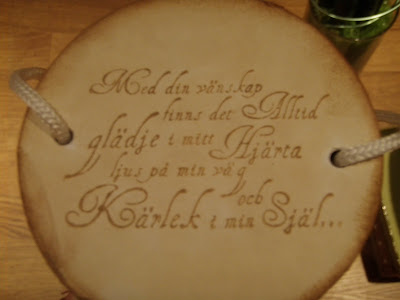 Med din vänskap
finns det Alltid
glädje i mitt Hjärta
ljus på min väg
och
Kärlek i min Själ...